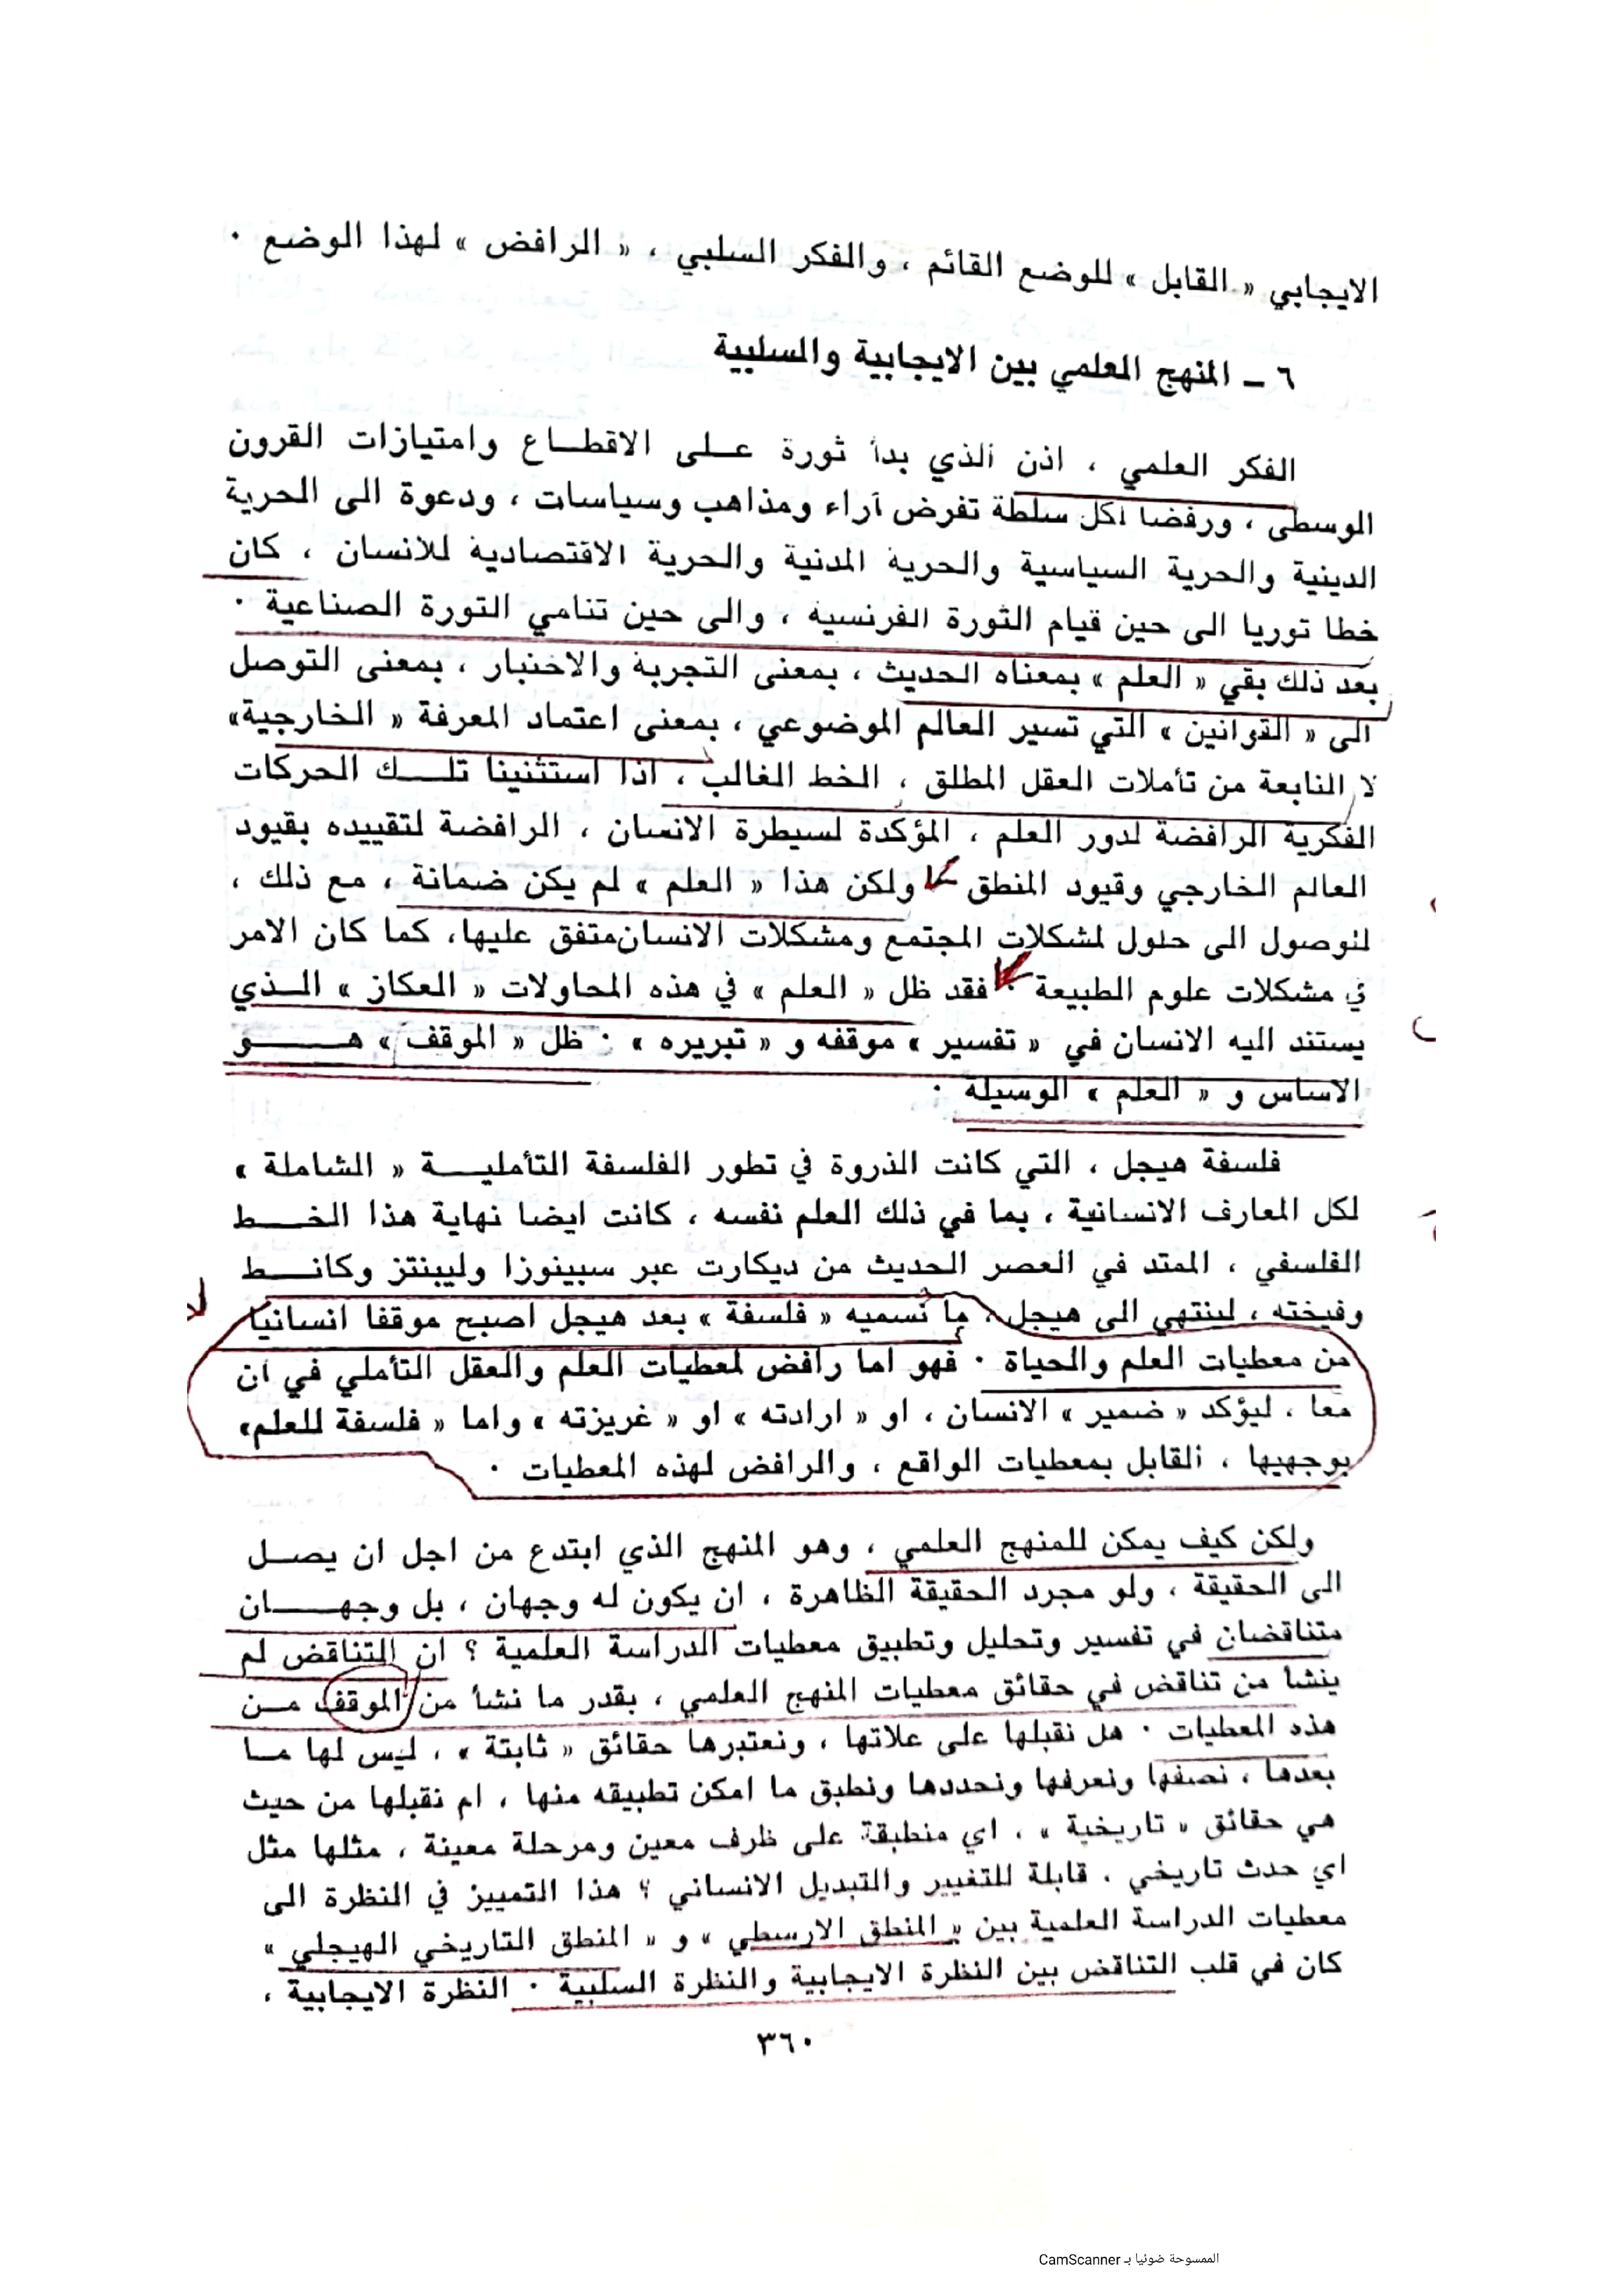 الايجابي « القابل » للوضع القائم ، والفكر السلبي ، « الرافض » لهذا الوضع ·
٦ – المنهج العلمي بين الايجابية والسلبية
الفكر العلمي ، اذن الذي بدأ ثورة على الاقطاع وامتيازات القرون
الوسطى ، ورفضا لكل سلطة تفرض آراء ومذاهب وسياسات ، ودعوة الى الحرية
الدينية والحرية السياسية والحرية المدنية والحرية الاقتصادية للانسان ، كان
خطا ثوريا الى حين قيام الثورة الفرنسية ، والى حين تنامي الثورة الصناعية ·
بعد ذلك بقي « العلم » بمعناه الحديث ، بمعنى التجربة والاختبار ، بمعنى التوصل
الى « القوانين » التي تسير العالم الموضوعي ، بمعنى اعتماد المعرفة « الخارجية»
لا النابعة من تأملات العقل المطلق ، الخط الغالب ، اذا استثنينا تلك الحركات
الفكرية الرافضة لدور العلم ، المؤكدة لسيطرة الانسان ، الرافضة لتقييده بقيود
العالم الخارجي وقيود المنطق ولكن هذا « العلم » لم يكن ضمانة ، مع ذلك ،
للوصول الى حلول لمشكلات المجتمع ومشكلات الانسان متفق عليها، كما كان الامر
في مشكلات علوم الطبيعة · فقد ظل « العلم » في هذه المحاولات « العكاز » الذي
يستند اليه الانسان في « تفسير » موقفه و « تبريره » · ظل « الموقف » هو
الاساس و « العلم » الوسيلة ·
فلسفة هيجل ، التي كانت الذروة في تطور الفلسفة التأملية « الشاملة »
لكل المعارف الانسانية ، بما في ذلك العلم نفسه ، كانت ايضا نهاية هذا الخط
الفلسفي ، الممتد في العصر الحديث من ديكارت عبر سبينوزا وليبنتز وكانط
وفيخته ، لينتهي الى هيجل ، ما نسميه « فلسفة » بعد هيجل اصبح موقفا انسانيا
من معطيات العلم والحياة · فهو اما رافض لمعطيات العلم والعقل التأملي في آن
معا ، ليؤكد « ضمير » الانسان ، او « ارادته » او « غريزته » واما « فلسفة للعلم»
بوجهيها ، القابل بمعطيات الواقع ، والرافض لهذه المعطيات ·
ولكن كيف يمكن للمنهج العلمي ، وهو المنهج الذي ابتدع من اجل ان يصل
الى الحقيقة ، ولو مجرد الحقيقة الظاهرة ، ان يكون له وجهان ، بل وجهان
متناقضان في تفسير وتحليل وتطبيق معطيات الدراسة العلمية ؟ ان التناقض لم
ينشأ من تناقض في حقائق معطيات المنهج العلمي ، بقدر ما نشأ من الموقف من
هذه المعطيات · هل نقبلها على علاتها ، ونعتبرها حقائق « ثابتة » ، ليس لها ما
بعدها ، نصفها ونعرفها ونحددها ونطبق ما امكن تطبيقه منها ، ام نقبلها من حيث
هي حقائق « تاريخية » ، اي منطبقة على ظرف معين ومرحلة معينة ، مثلها مثل
اي حدث تاريخي ، قابلة للتغيير والتبديل الانساني ؟ هذا التمييز في النظرة الى
معطيات الدراسة العلمية بين « المنطق الارسطي » و « المنطق التاريخي الهيجلي »
كان في قلب التناقض بين النظرة الايجابية والنظرة السلبية · النظرة الايجابية ،
٣٦٠
الممسوحة ضوئيا بـ CamScanner